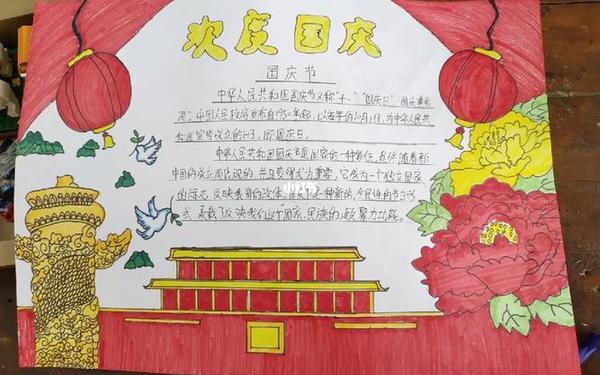 欢度国庆
国庆节
中华人民共和国国庆节又称"十一""国庆日""国庆
中国人民政府宣布自1949年起,以每年的10月1日,为中华人民共
和国宣告成立的日子,即国庆日。
中华人民共和国国庆节是国家的一种象征,是伴随着新
中国的成立而出现的,并且变得尤为重要,它成为一个独立国家
的标志,反映我国的,国庆是一种新的、全民性的节日形
式,承载了反映我们这个国家、民族的凝聚力功能。
小红书